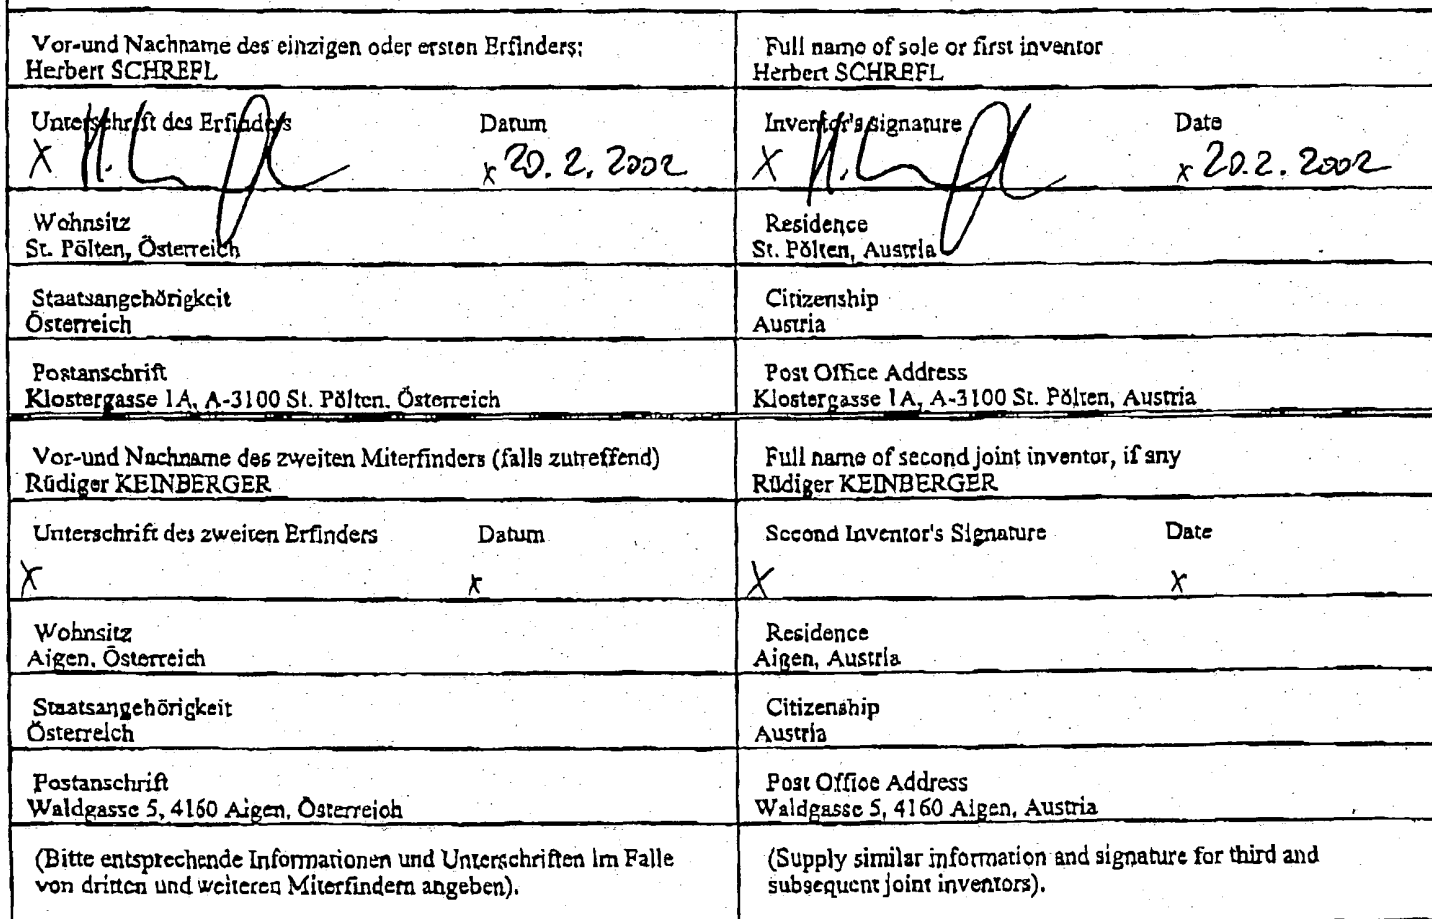 Vor-und Nachname des einzigen oder ersten Erfinders;
Herbert SCHREFL
Full name of sole or first inventor
Herbert SCHREFL
Unterschrift des Erfinders Datum
X x 20. 2. 2002
Inventor's signature Date
X x 20.2. 2002
Wohnsitz
St. Pölten, Österreich
Residence
St. Pölten, Austria
Staatsangehörigkeit
Österreich
Citizenship
Austria
Postanschrift
Klostergasse 1A, A-3100 St. Pölten, Österreich
Post Office Address
Klostergasse 1A, A-3100 St. Pölten, Austria
Vor-und Nachname des zweiten Miterfinders (falls zutreffend)
Rüdiger KEINBERGER
Full name of second joint inventor, if any
Rüdiger KEINBERGER
Unterschrift des zweiten Erfinders Datum
X x
Second Inventor's Signature Date
X x
Wohnsitz
Aigen, Österreich
Residence
Aigen, Austria
Staatsangehörigkeit
Österreich
Citizenship
Austria
Postanschrift
Waldgasse 5, 4160 Aigen, Österreich
Post Office Address
Waldgasse 5, 4160 Aigen, Austria
(Bitte entsprechende Informationen und Unterschriften im Falle
von dritten und weiteren Miterfindern angeben).
(Supply similar information and signature for third and
subsequent joint inventors).